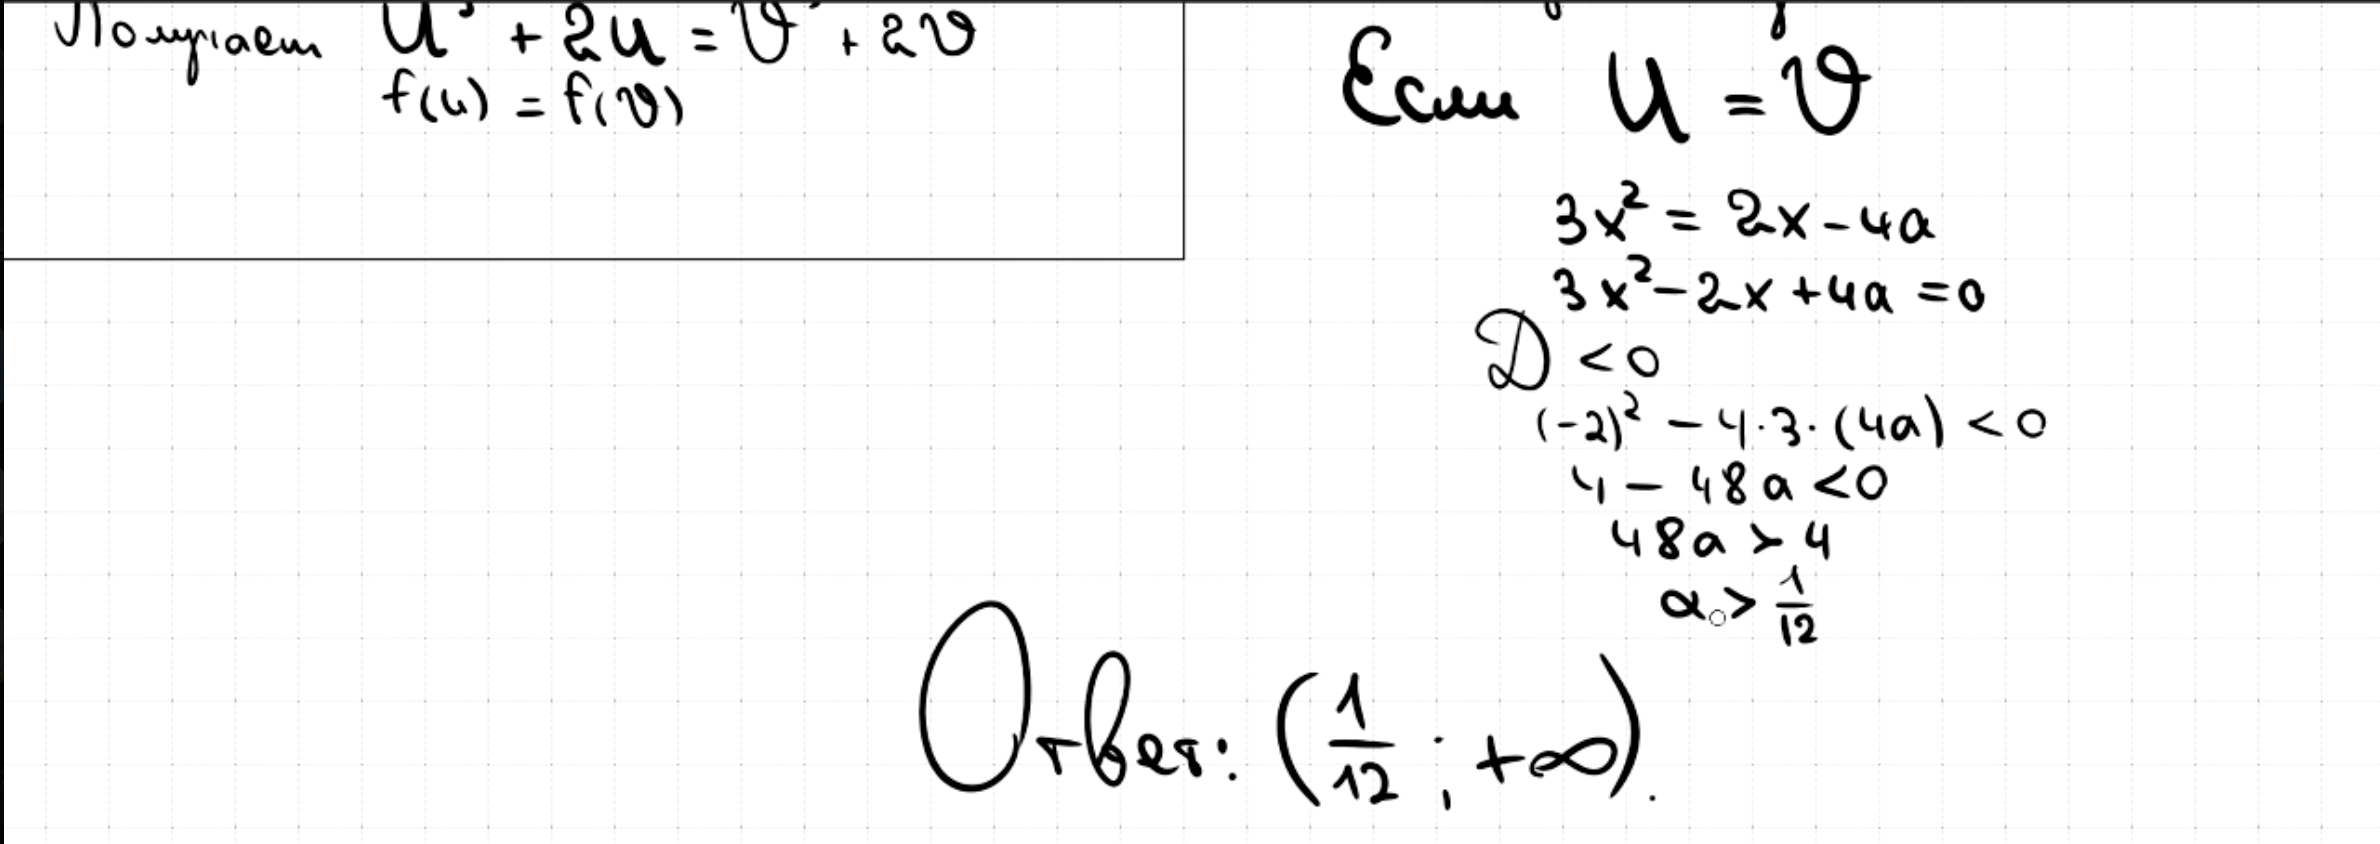 Получаем u³ + 2u = v³ + 2v
f(u) = f(v)
Если u = v
3x² = 2x - 4a
3x² - 2x + 4a = 0
D < 0
(-2)² - 4·3·(4a) < 0
4 - 48a < 0
48a > 4
a > 1/12
Ответ: (1/12 ; +∞).